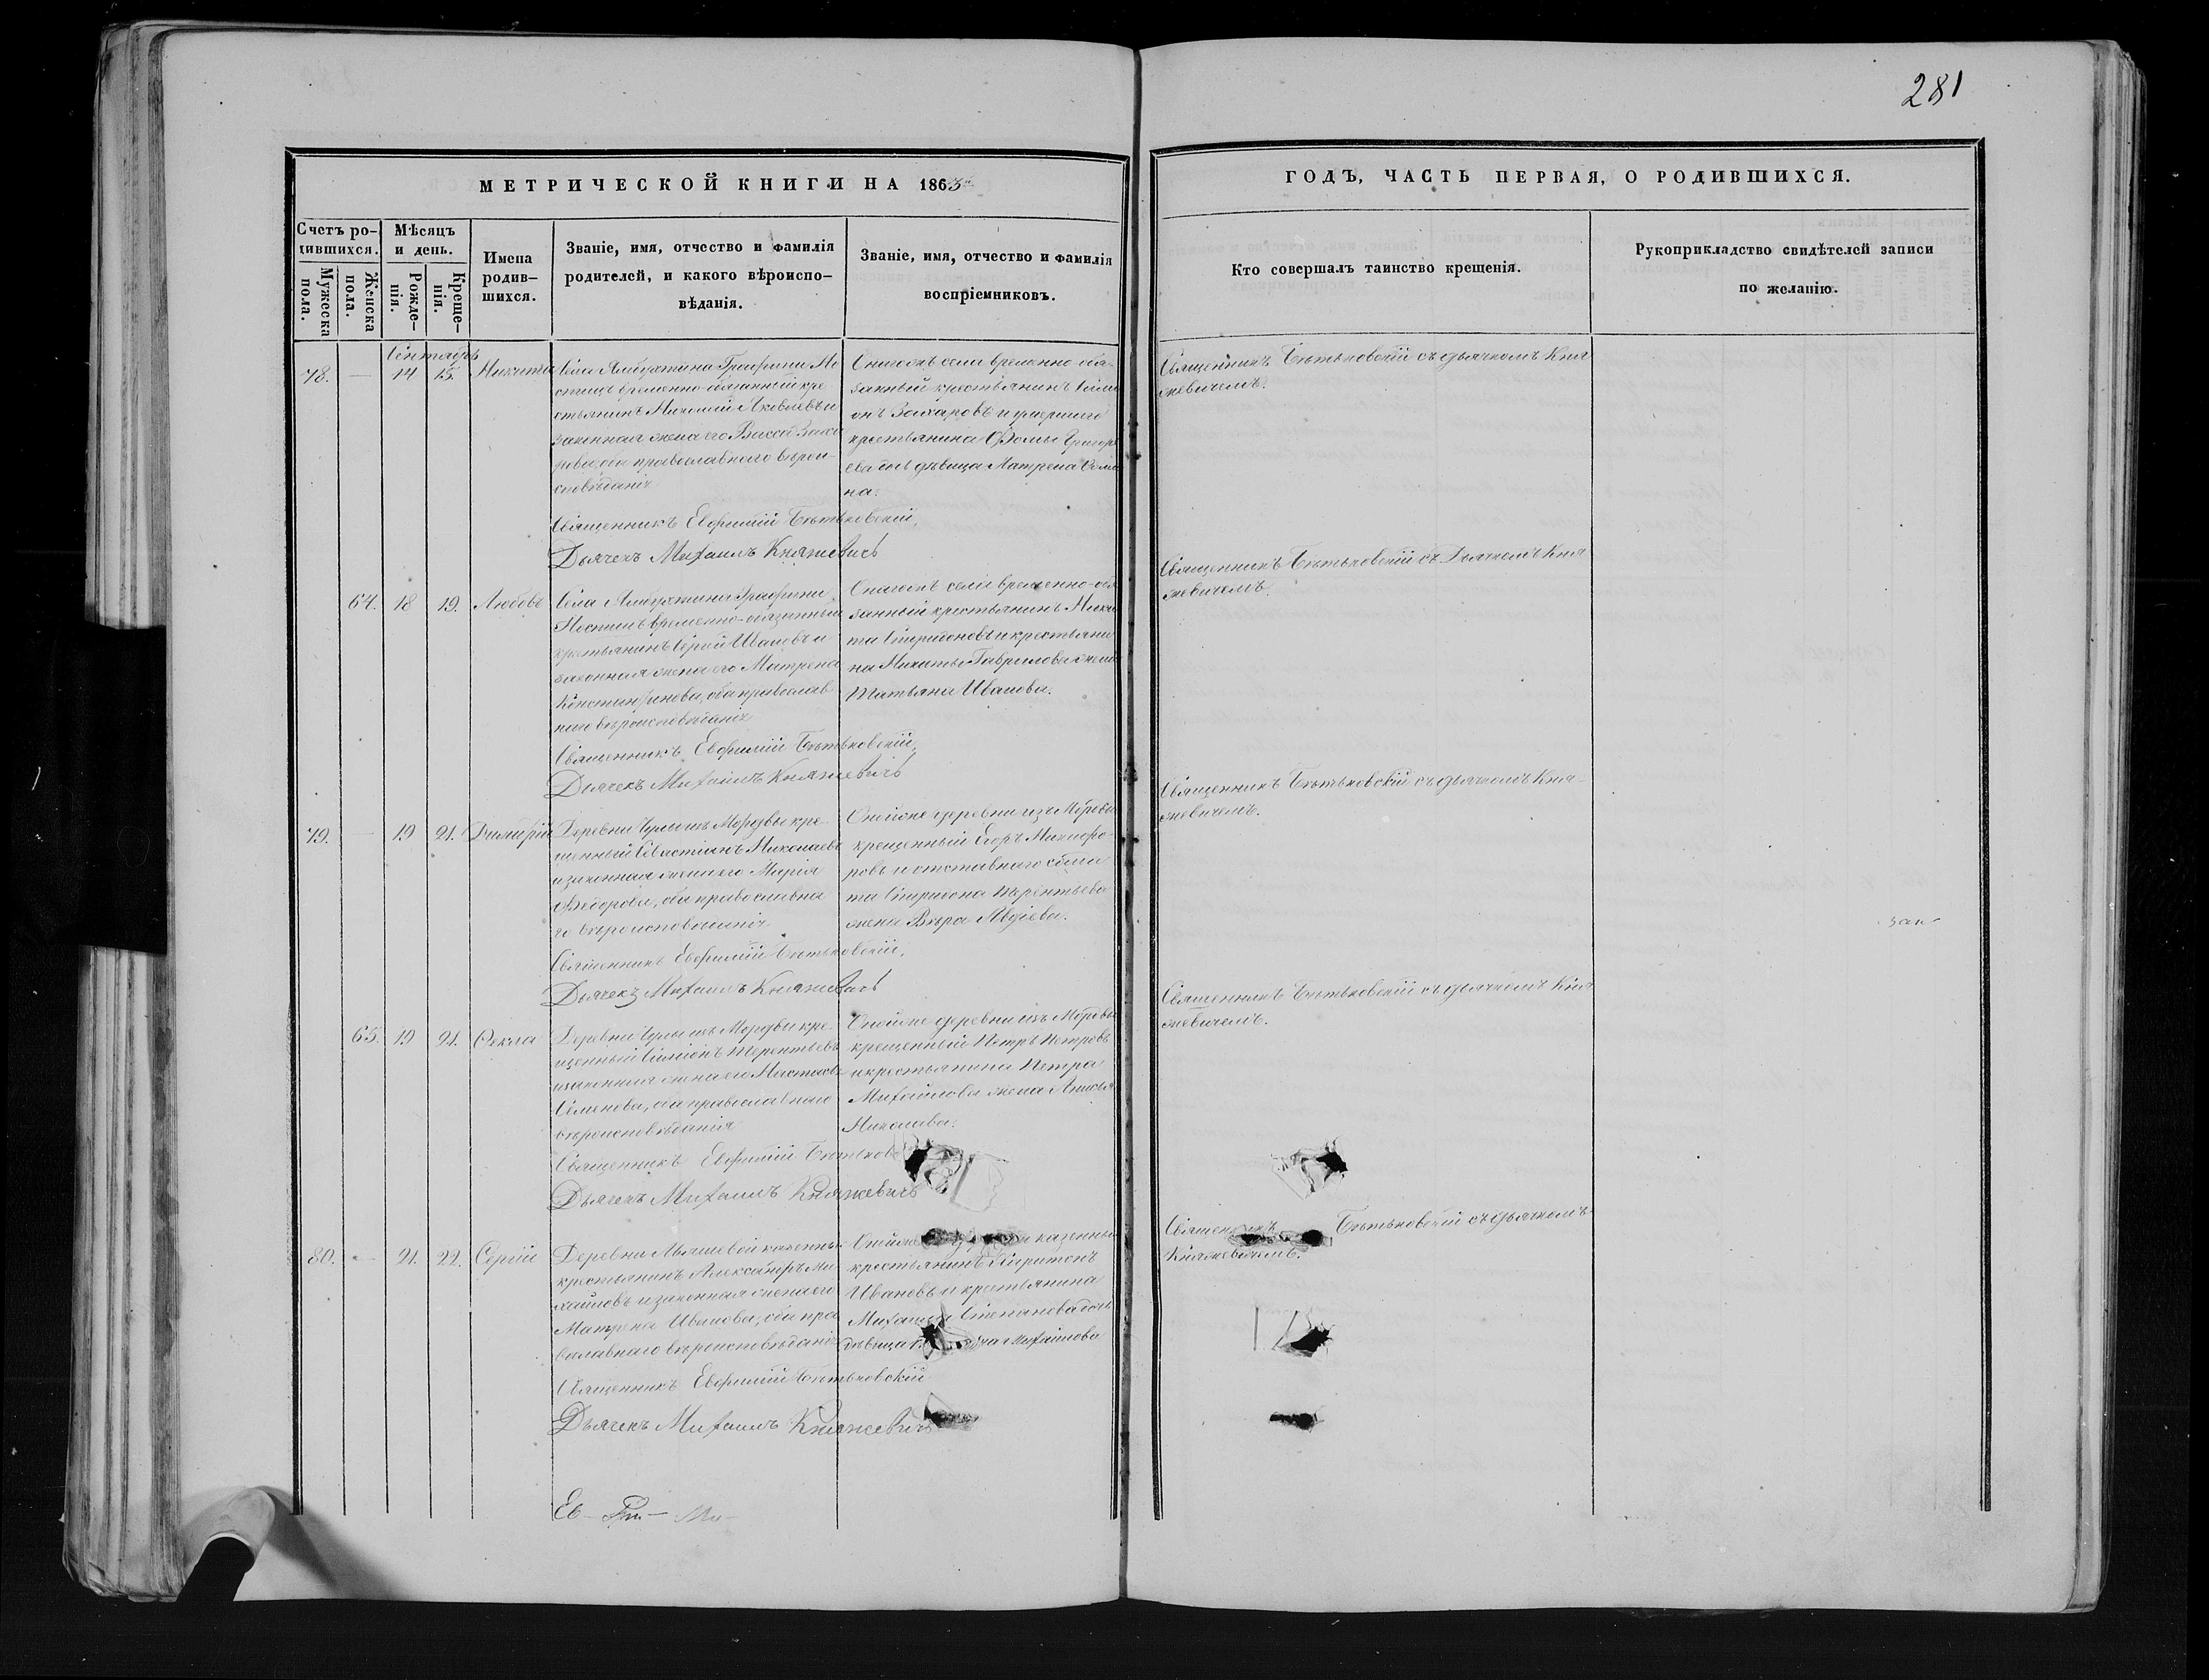 281
МЕТРИЧЕСКОЙ КНИГИ НА 1863
ГОДЪ, ЧАСТЬ ПЕРВАЯ, О РОДИВШИХСЯ.
Счетъ ро-
дившихся.
Мужеска пола.
Женска пола.
Мѣсяцъ
и день.
Рожде-
нія.
Креще-
нія.
Имена
родив-
шихся.
Званіе, имя, отчество и фамилія
родителей, и какого вѣроиспо-
вѣданія.
Званіе, имя, отчество и фамилія
воспріемниковъ.
Кто совершалъ таинство крещенія.
Рукоприкладство свидѣтелей записи
по желанію.
Сентябрь
78. — 14 15. Никита
Села временно-обязанный кре
стьянинъ Яковлевъ и
законная жена его Васса Заха
рова, оба православнаго вѣрои-
сповѣданія
Священникъ Евфимій
Дьячекъ Михаилъ Княжевичъ
села временно-обя-
занный крестьянинъ Сими
онъ Захаровъ и умершаго
крестьянина Фомы Григорь
ева дочь дѣвица Матрена Фоми
на.
Священникъ съ дьячкомъ Кня
жевичемъ.
64. 18 19. Любовь
Села
временно-обязанный
крестьянинъ Сергій и
законная жена его Матрена
Константинова, оба православ
наго вѣроисповѣданія
Священникъ Евфимій
Дьячекъ Михаилъ Княжевичъ
села временно-обя
занный крестьянинъ Ники
та Спиридоновъ и крестьяни
на Никиты Гаврилова жена
Татьяна Иванова.
Священникъ съ Дьячкомъ Кня
жевичемъ.
79. — 19 21. Димитрій
Деревни Мордвы кре-
щенный Севастіанъ Николаевъ
и законная жена его Марія
Ѳедорова, оба православна
го вѣроисповѣданія
Священникъ Евфимій
Дьячекъ Михаилъ Княжевичъ
деревни изъ Мордвы
крещенный Егоръ Никифо-
ровъ и отставнаго солда
та Спиридона Терентьева
жена Вѣра Авдіева.
Священникъ съ дьячкомъ Кня-
жевичемъ.
65. 19 21. Ѳекла
Деревни Мордвы кре-
щенный Симіонъ Терентьевъ
и законная жена его
Семенова, оба православнаго
вѣроисповѣданія
Священникъ Евфимій
Дьячекъ Михаилъ Княжевичъ
деревни изъ Мордвы
крещенный Петръ Петровъ
и крестьянина Петра
Михайлова жена Анисья
Николаева.
Священникъ съ дьячкомъ Кня
жевичемъ.
80. — 21. 22. Сергій
Деревни казенный
крестьянинъ Александръ Ми
хайловъ и законная жена его
Матрена Иванова, оба пра
вославнаго вѣроисповѣданія
Священникъ Евфимій
Дьячекъ Михаилъ Княжевичъ
казенный
крестьянинъ Харитонъ
Ивановъ и крестьянина
Михаила Степанова дочь
дѣвица Михайлова
Священникъ съ дьячкомъ
Княжевичемъ.
Ев- Ми-